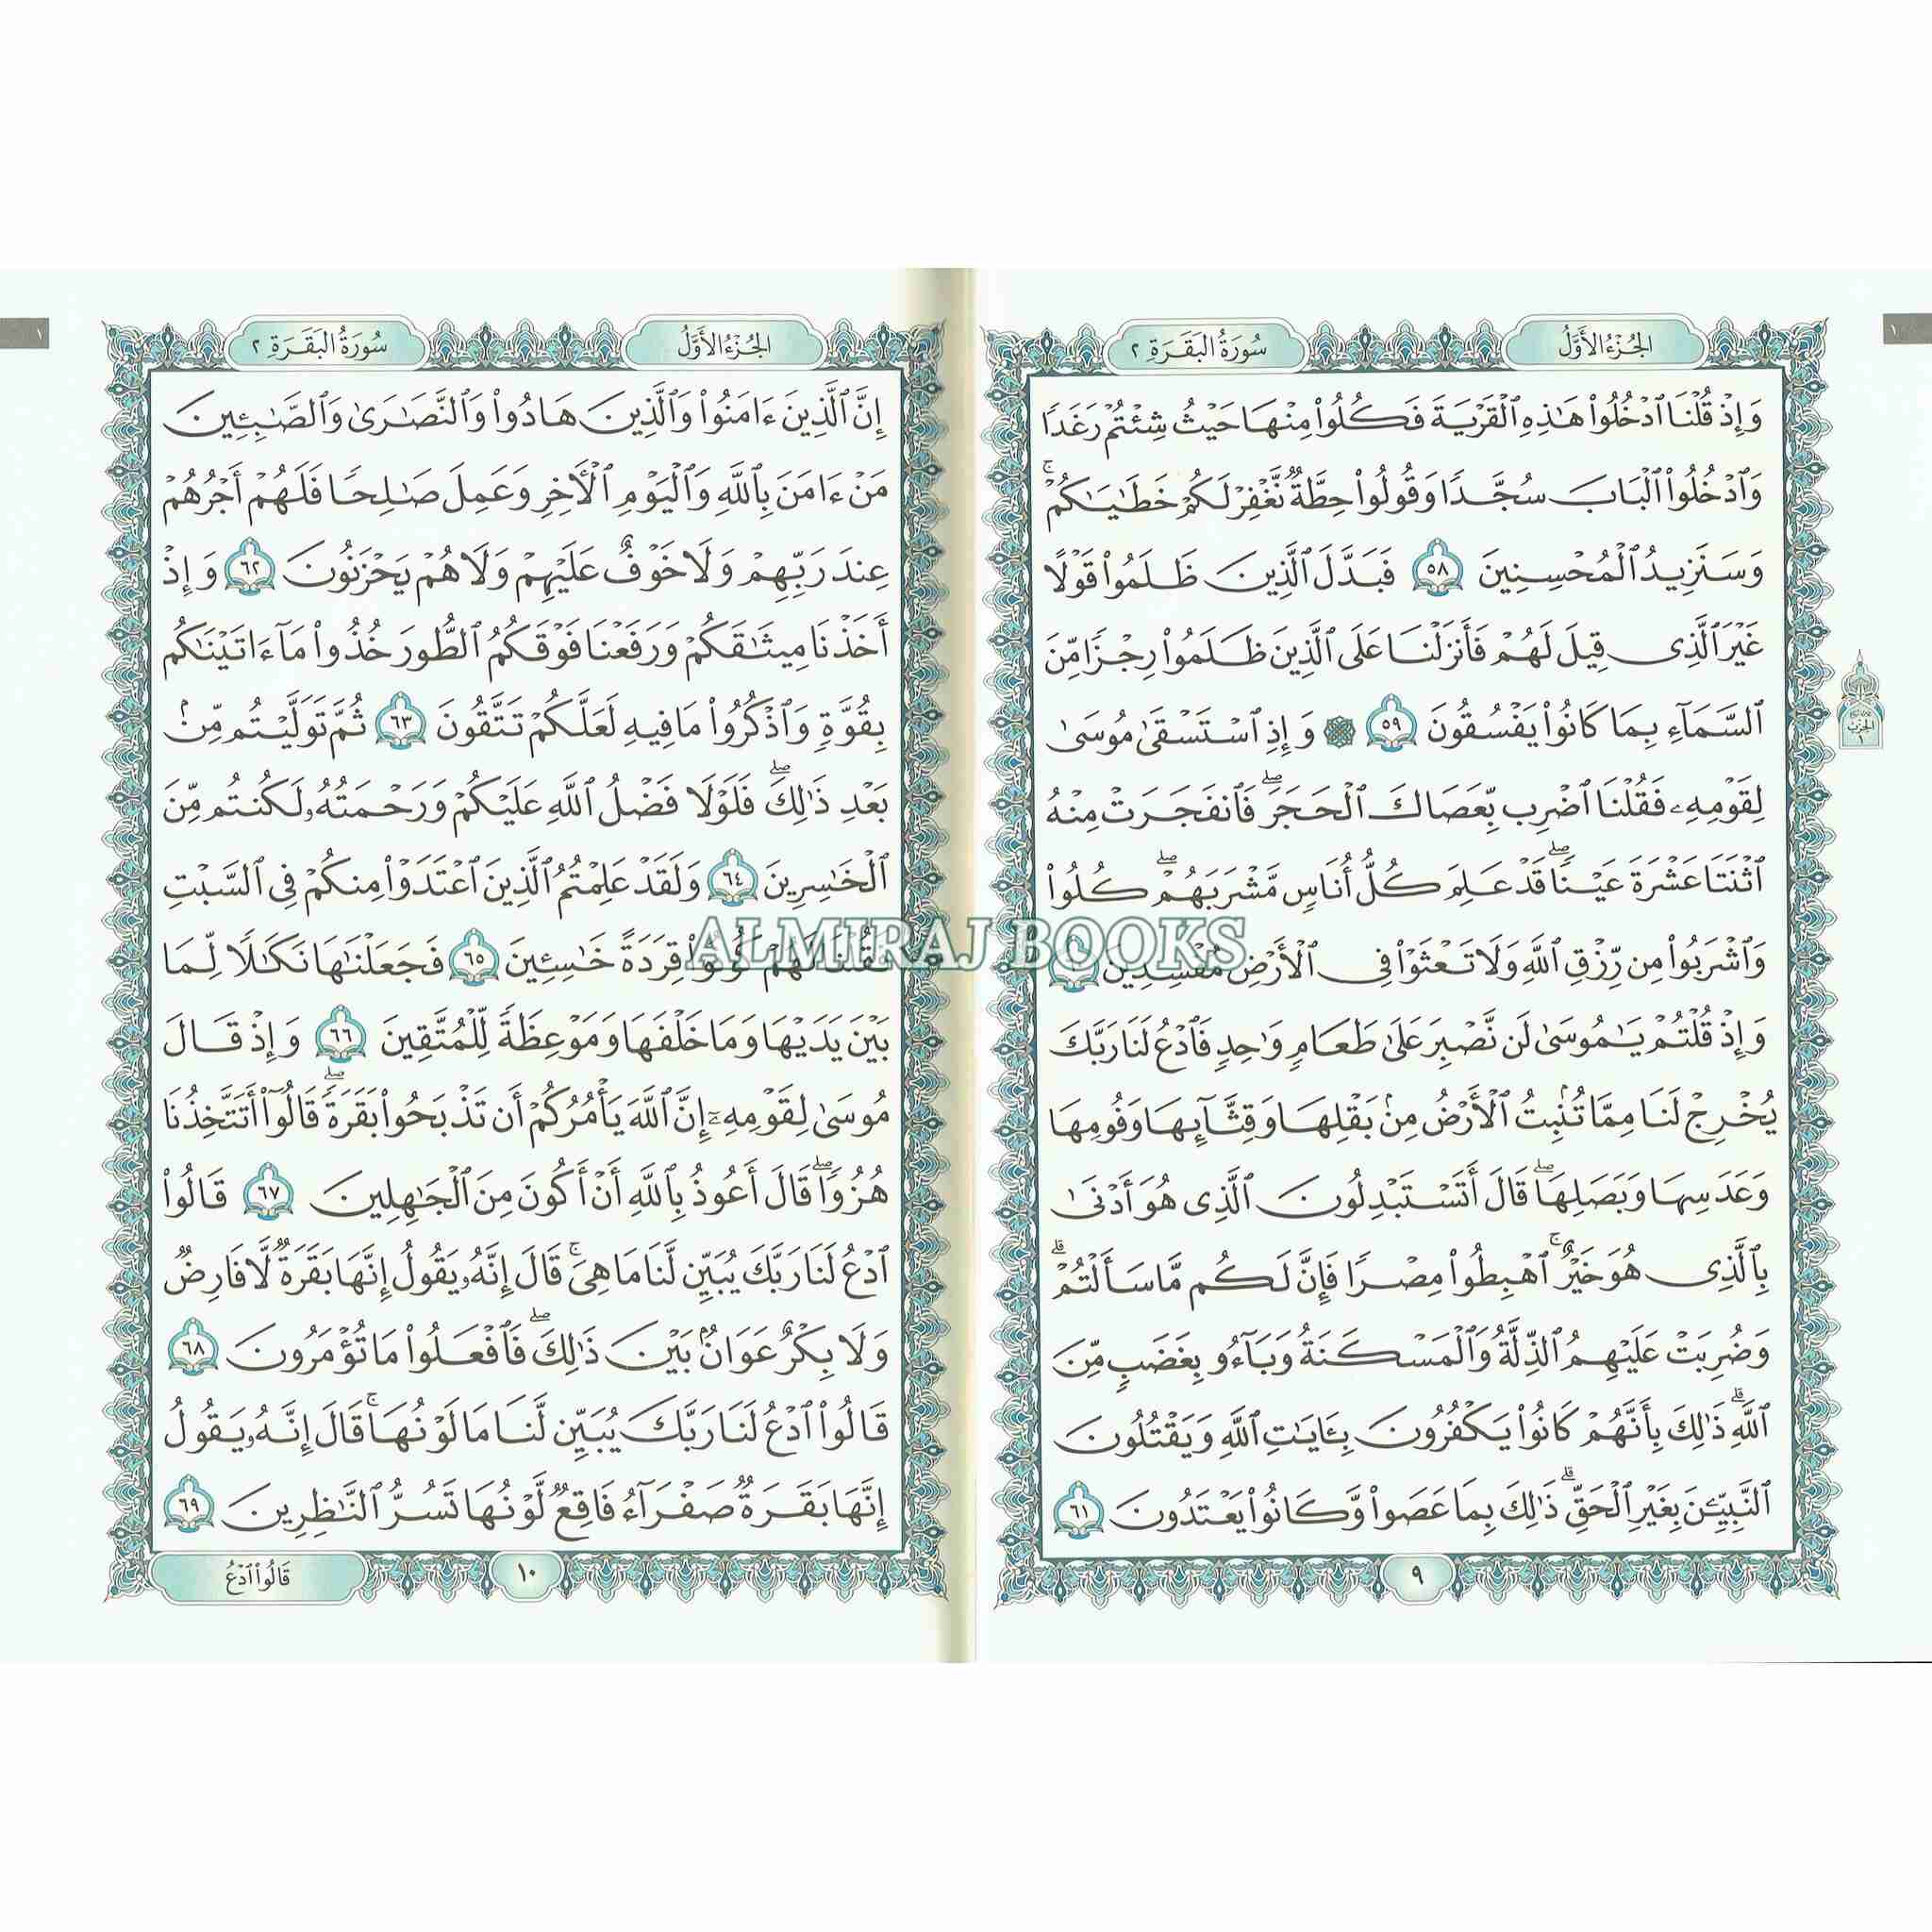 الجُزْءُ الأَوَّلُ
سُورَةُ البَقَرَةِ ٢
١
وَإِذْ قُلْنَا ٱدْخُلُوا۟ هَـٰذِهِ ٱلْقَرْيَةَ فَكُلُوا۟ مِنْهَا حَيْثُ شِئْتُمْ رَغَدًا
وَٱدْخُلُوا۟ ٱلْبَابَ سُجَّدًا وَقُولُوا۟ حِطَّةٌ نَّغْفِرْ لَكُمْ خَطَـٰيَـٰكُمْ ۚ
وَسَنَزِيدُ ٱلْمُحْسِنِينَ ٥٨ فَبَدَّلَ ٱلَّذِينَ ظَلَمُوا۟ قَوْلًا
غَيْرَ ٱلَّذِى قِيلَ لَهُمْ فَأَنزَلْنَا عَلَى ٱلَّذِينَ ظَلَمُوا۟ رِجْزًا مِّنَ
ٱلسَّمَآءِ بِمَا كَانُوا۟ يَفْسُقُونَ ٥٩ ۞ وَإِذِ ٱسْتَسْقَىٰ مُوسَىٰ
لِقَوْمِهِۦ فَقُلْنَا ٱضْرِب بِّعَصَاكَ ٱلْحَجَرَ ۖ فَٱنفَجَرَتْ مِنْهُ
ٱثْنَتَا عَشْرَةَ عَيْنًا ۖ قَدْ عَلِمَ كُلُّ أُنَاسٍ مَّشْرَبَهُمْ ۖ كُلُوا۟
وَٱشْرَبُوا۟ مِن رِّزْقِ ٱللَّهِ وَلَا تَعْثَوْا۟ فِى ٱلْأَرْضِ مُفْسِدِينَ
وَإِذْ قُلْتُمْ يَـٰمُوسَىٰ لَن نَّصْبِرَ عَلَىٰ طَعَامٍ وَٰحِدٍ فَٱدْعُ لَنَا رَبَّكَ
يُخْرِجْ لَنَا مِمَّا تُنۢبِتُ ٱلْأَرْضُ مِنۢ بَقْلِهَا وَقِثَّآئِهَا وَفُومِهَا
وَعَدَسِهَا وَبَصَلِهَا ۖ قَالَ أَتَسْتَبْدِلُونَ ٱلَّذِى هُوَ أَدْنَىٰ
بِٱلَّذِى هُوَ خَيْرٌ ۚ ٱهْبِطُوا۟ مِصْرًا فَإِنَّ لَكُم مَّا سَأَلْتُمْ ۗ
وَضُرِبَتْ عَلَيْهِمُ ٱلذِّلَّةُ وَٱلْمَسْكَنَةُ وَبَآءُو بِغَضَبٍ مِّنَ
ٱللَّهِ ۗ ذَٰلِكَ بِأَنَّهُمْ كَانُوا۟ يَكْفُرُونَ بِـَٔايَـٰتِ ٱللَّهِ وَيَقْتُلُونَ
ٱلنَّبِيِّـۧنَ بِغَيْرِ ٱلْحَقِّ ۗ ذَٰلِكَ بِمَا عَصَوا۟ وَّكَانُوا۟ يَعْتَدُونَ ٦١
٩
الجُزْءُ الأَوَّلُ
سُورَةُ البَقَرَةِ ٢
١
إِنَّ ٱلَّذِينَ ءَامَنُوا۟ وَٱلَّذِينَ هَادُوا۟ وَٱلنَّصَـٰرَىٰ وَٱلصَّـٰبِـِٔينَ
مَنْ ءَامَنَ بِٱللَّهِ وَٱلْيَوْمِ ٱلْـَٔاخِرِ وَعَمِلَ صَـٰلِحًا فَلَهُمْ أَجْرُهُمْ
عِندَ رَبِّهِمْ وَلَا خَوْفٌ عَلَيْهِمْ وَلَا هُمْ يَحْزَنُونَ ٦٢ وَإِذْ
أَخَذْنَا مِيثَـٰقَكُمْ وَرَفَعْنَا فَوْقَكُمُ ٱلطُّورَ خُذُوا۟ مَآ ءَاتَيْنَـٰكُم
بِقُوَّةٍ وَٱذْكُرُوا۟ مَا فِيهِ لَعَلَّكُمْ تَتَّقُونَ ٦٣ ثُمَّ تَوَلَّيْتُم مِّنۢ
بَعْدِ ذَٰلِكَ ۖ فَلَوْلَا فَضْلُ ٱللَّهِ عَلَيْكُمْ وَرَحْمَتُهُۥ لَكُنتُم مِّنَ
ٱلْخَـٰسِرِينَ ٦٤ وَلَقَدْ عَلِمْتُمُ ٱلَّذِينَ ٱعْتَدَوْا۟ مِنكُمْ فِى ٱلسَّبْتِ
فَقُلْنَا لَهُمْ كُونُوا۟ قِرَدَةً خَـٰسِـِٔينَ ٦٥ فَجَعَلْنَـٰهَا نَكَـٰلًا لِّمَا
بَيْنَ يَدَيْهَا وَمَا خَلْفَهَا وَمَوْعِظَةً لِّلْمُتَّقِينَ ٦٦ وَإِذْ قَالَ
مُوسَىٰ لِقَوْمِهِۦٓ إِنَّ ٱللَّهَ يَأْمُرُكُمْ أَن تَذْبَحُوا۟ بَقَرَةً ۖ قَالُوٓا۟ أَتَتَّخِذُنَا
هُزُوًا ۖ قَالَ أَعُوذُ بِٱللَّهِ أَنْ أَكُونَ مِنَ ٱلْجَـٰهِلِينَ ٦٧ قَالُوا۟
ٱدْعُ لَنَا رَبَّكَ يُبَيِّن لَّنَا مَا هِىَ ۚ قَالَ إِنَّهُۥ يَقُولُ إِنَّهَا بَقَرَةٌ لَّا فَارِضٌ
وَلَا بِكْرٌ عَوَانٌۢ بَيْنَ ذَٰلِكَ ۖ فَٱفْعَلُوا۟ مَا تُؤْمَرُونَ ٦٨
قَالُوا۟ ٱدْعُ لَنَا رَبَّكَ يُبَيِّن لَّنَا مَا لَوْنُهَا ۚ قَالَ إِنَّهُۥ يَقُولُ
إِنَّهَا بَقَرَةٌ صَفْرَآءُ فَاقِعٌ لَّوْنُهَا تَسُرُّ ٱلنَّـٰظِرِينَ ٦٩
١٠
قَالُوا۟ ٱدْعُ
ALMIRAJ BOOKS